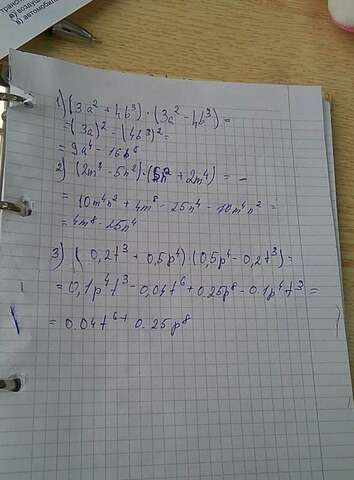 а) воздуш
в) автомобил
1) (3a² + 4b³) · (3a² - 4b³) =
= (3a)² - (4b³)² =
= 9a⁴ - 16b⁶
2) (2m⁴ - 5n²) · (5n² + 2m⁴) = -
= 10m⁴n² + 4m⁸ - 25n⁴ - 10m⁴n² =
= 4m⁸ - 25n⁴
3) (0,2t³ + 0,5p⁴) (0,5p⁴ - 0,2t³) =
= 0,1p⁴t³ - 0,04t⁶ + 0.25p⁸ - 0.1p⁴t³ =
= 0.04t⁶ + 0.25p⁸